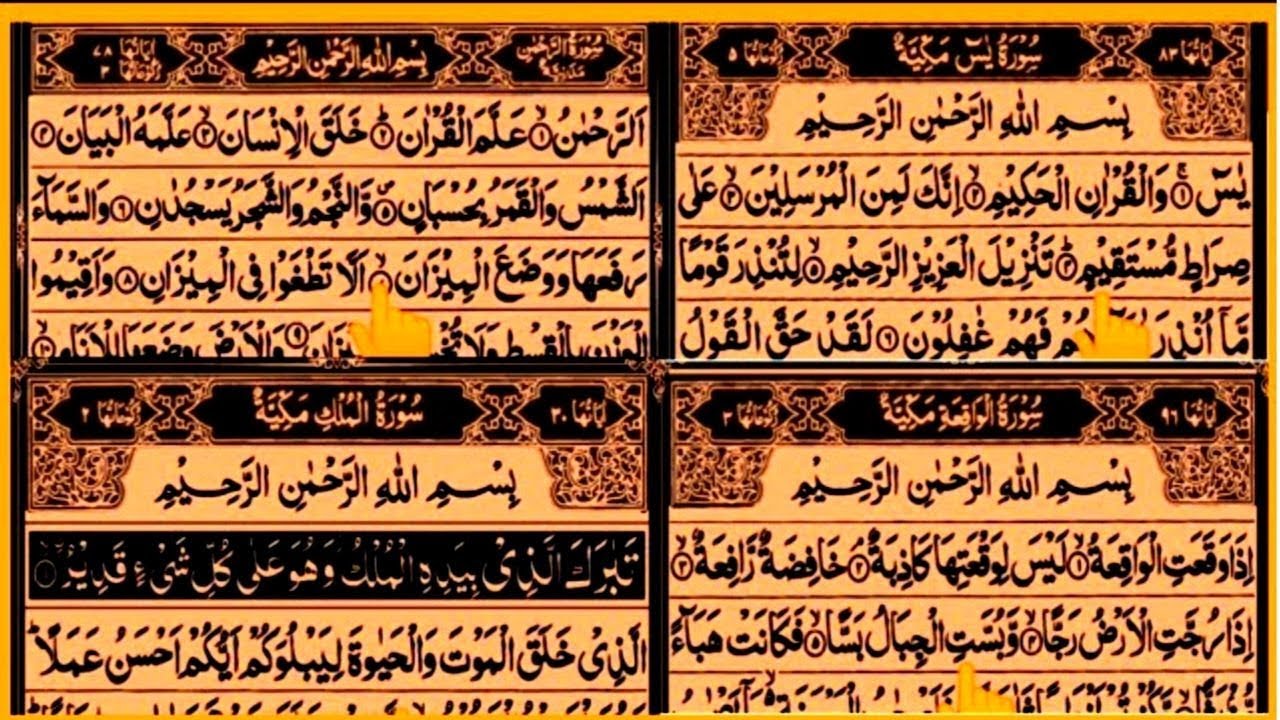 سُوْرَةُ الرَّحْمٰنِ مَدَنِيَّةٌ
بِسْمِ اللهِ الرَّحْمٰنِ الرَّحِيْمِ
اٰيَاتُهَا ٧٨
رُكُوْعَاتُهَا ٣
اَلرَّحْمٰنُ ۝١ عَلَّمَ الْقُرْاٰنَ ۝٢ خَلَقَ الْاِنْسَانَ ۝٣ عَلَّمَهُ الْبَيَانَ ۝٤
اَلشَّمْسُ وَالْقَمَرُ بِحُسْبَانٍ ۝٥ وَّالنَّجْمُ وَالشَّجَرُ يَسْجُدٰنِ ۝٦ وَالسَّمَآءَ
رَفَعَهَا وَوَضَعَ الْمِيْزَانَ ۝٧ اَلَّا تَطْغَوْا فِى الْمِيْزَانِ ۝٨ وَاَقِيْمُوا
الْوَزْنَ بِالْقِسْطِ وَلَا الْمِيْزَانَ ۝٩ وَالْاَرْضَ وَضَعَهَا لِلْاَنَامِ ۝١٠
اٰيَاتُهَا ٨٣
سُوْرَةُ يٰسٓ مَكِّيَّةٌ
رُكُوْعَاتُهَا ٥
بِسْمِ اللهِ الرَّحْمٰنِ الرَّحِيْمِ
يٰسٓ ۝١ وَالْقُرْاٰنِ الْحَكِيْمِ ۝٢ اِنَّكَ لَمِنَ الْمُرْسَلِيْنَ ۝٣ عَلٰى
صِرَاطٍ مُّسْتَقِيْمٍ ۝٤ تَنْزِيْلَ الْعَزِيْزِ الرَّحِيْمِ ۝٥ لِتُنْذِرَ قَوْمًا
مَّآ اُنْذِرَ فَهُمْ غٰفِلُوْنَ ۝٦ لَقَدْ حَقَّ الْقَوْلُ
اٰيَاتُهَا ٣٠
سُوْرَةُ الْمُلْكِ مَكِّيَّةٌ
رُكُوْعَاتُهَا ٢
بِسْمِ اللهِ الرَّحْمٰنِ الرَّحِيْمِ
تَبٰرَكَ الَّذِىْ بِيَدِهِ الْمُلْكُ وَهُوَ عَلٰى كُلِّ شَىْءٍ قَدِيْرُ ۝١
الَّذِىْ خَلَقَ الْمَوْتَ وَالْحَيٰوةَ لِيَبْلُوَكُمْ اَيُّكُمْ اَحْسَنُ عَمَلًا
اٰيَاتُهَا ٩٦
سُوْرَةُ الْوَاقِعَةِ مَكِّيَّةٌ
رُكُوْعَاتُهَا ٣
بِسْمِ اللهِ الرَّحْمٰنِ الرَّحِيْمِ
اِذَا وَقَعَتِ الْوَاقِعَةُ ۝١ لَيْسَ لِوَقْعَتِهَا كَاذِبَةٌ ۝٢ خَافِضَةٌ رَّافِعَةٌ ۝٣
اِذَا رُجَّتِ الْاَرْضُ رَجًّا ۝٤ وَّبُسَّتِ الْجِبَالُ بَسًّا ۝٥ فَكَانَتْ هَبَآءً